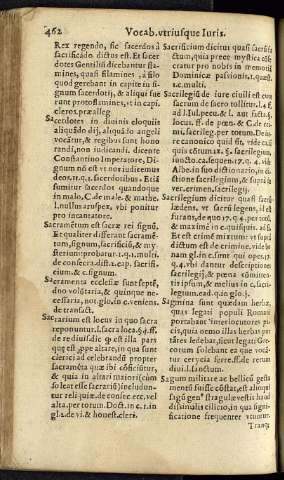 462 Vocab. vtriusque Iuris.
Rex regendo, sic sacerdos à
sacrificādo dictus est. Et sacer
dotes Gentiliũ dicebantur fla-
mines, quasi filamines, à filo
quod gerebant in capite in si-
gnum sacerdotij, & aliqui fue
runt protoflamines, vt in capi.
cleros. præalleg.
Sacerdotes in diuinis eloquiis
aliquādo dij, aliquādo angeli
vocātur, & regibus sunt hono
randi, non iudicandi, dicente
Constantino Imperatore, Di-
gnum nō est vt nos iudicemus
deos. 11. q. 1. sacerdotibus. Et
sumitur sacerdos quandoque
in malo, C. de male. & mathe.
l. nullus aruspex. vbi ponitur
pro incantatore.
Sacramētum est sacræ rei signũ,
Et qualiter differant sacramē-
tum, signum, sacrificiũ, & my-
sterium: probatur. 1. q. 1. multi.
de consecra. dist. 2. cap. sacrifi-
cium. & c. signum.
Sacramenta ecclesiæ sunt septē,
duo volũtaria, & quinque ne-
cessaria, not. glo. in c. venient.
de transact.
Sacrarium est locus in quo sacra
reponuntur. l. sacra loca. §. ff.
de rerum diuisio.
que est prope altare, in qua sunt
clerici ad celebrandũ propter
sacramēta quæ ibi cōficiũtur,
& quia in altari maiori
solent esse sacrario includun-
tur reliquiæ. de consecr. ec. vel
alta. per totum. Doct. in c. 1. in
gl. 2. de vi. & honest. cleri.
Sacrificium dicitur quasi sacrū fa
ctum, quia prece mystica cōse
cratur pro nobis in memoriā
Dominicæ passionis. 1. quæst.
1. c. multi.
Sacrilegiũ de iure ciuili est cum
sacrum de sacro tollitur. l. 4. ff.
ad l. Iul. pecu. &
locus, ff. de pœn. aut fact. l. si
mi. sacrileg. per totum. De iu-
re canonico quid sit, vide ca.
quisquis cum. §. sacrilegium.
iuncto. ca. sequen. 17. q. 4. vide
Albe. in suo dictionario, in di-
ctione sacrilegium, & supra in
ver. crimen, sacrilegij.
Sacrilegium dicitur quasi sacri-
lædens, vt sacra legens, id est
furans, de quo 17. q. 4. per totũ.
& maximè in c. quisquis. al. 5.
Et est crimē mixtum: vt supra
dictum est de crimine, vide le
nam gl. in c. sunt qui opes. 17.
q. 4. vbi dantur descriptiones
sacrilegij, & pœna cōmitten-
tis ipsum, & melius in c. sacri-
legium. ead. q. in glo. j.
Sagmina sunt quædam herbæ,
quas legati populi Romani
portabant inter
ciis, quia nemo illas herbas por
tātes ledebar, sicut legati Gre-
corum solebant ea quæ voca-
tur cerycia ferre. ff. de rerum
diui. l. sanctum.
Sagum militare ac bellicũ gesta-
mentũ fuisse cōstat, est aliud
sagũ genꝰ stragulæ vestis haud
dissimulis cilicio, in qua signi-
ficatione frequenter vtuntur
Tranq